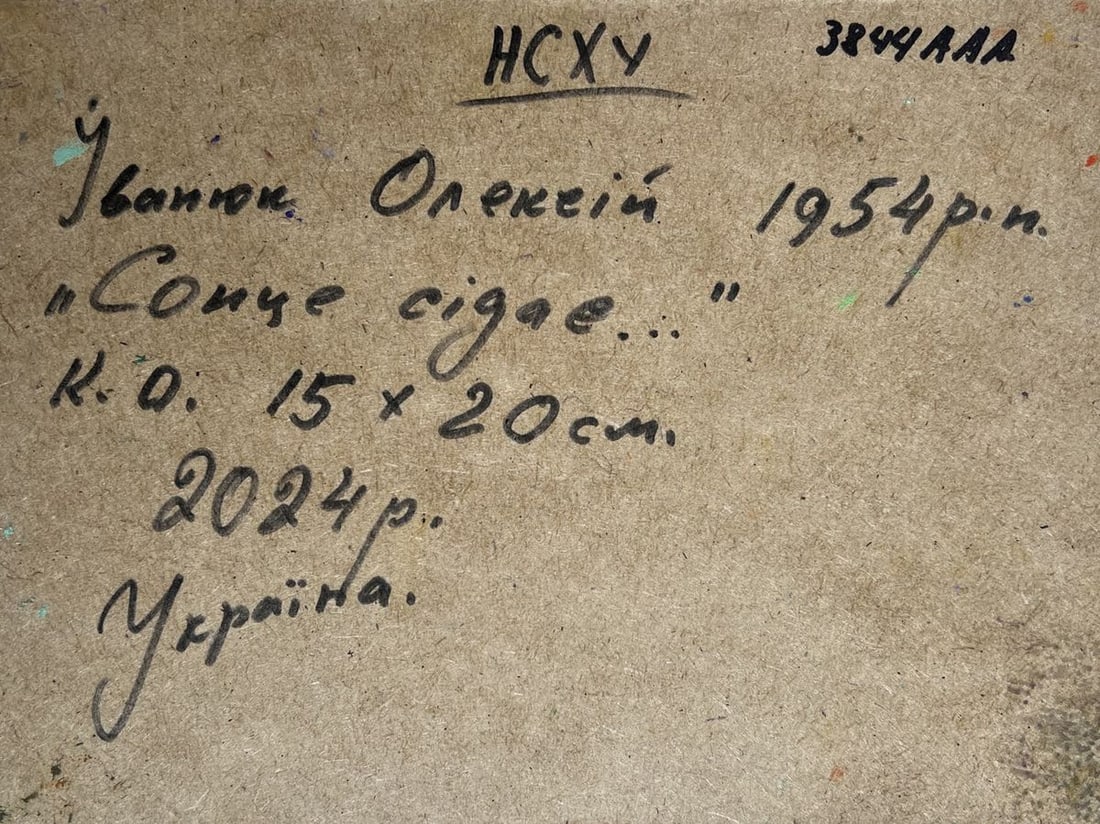 НСХУ 3844ААА
Іванюк Олексій 1954 р.н.
"Сонце сідає..."
К.О. 15 х 20 см.
2024 р.
Україна.